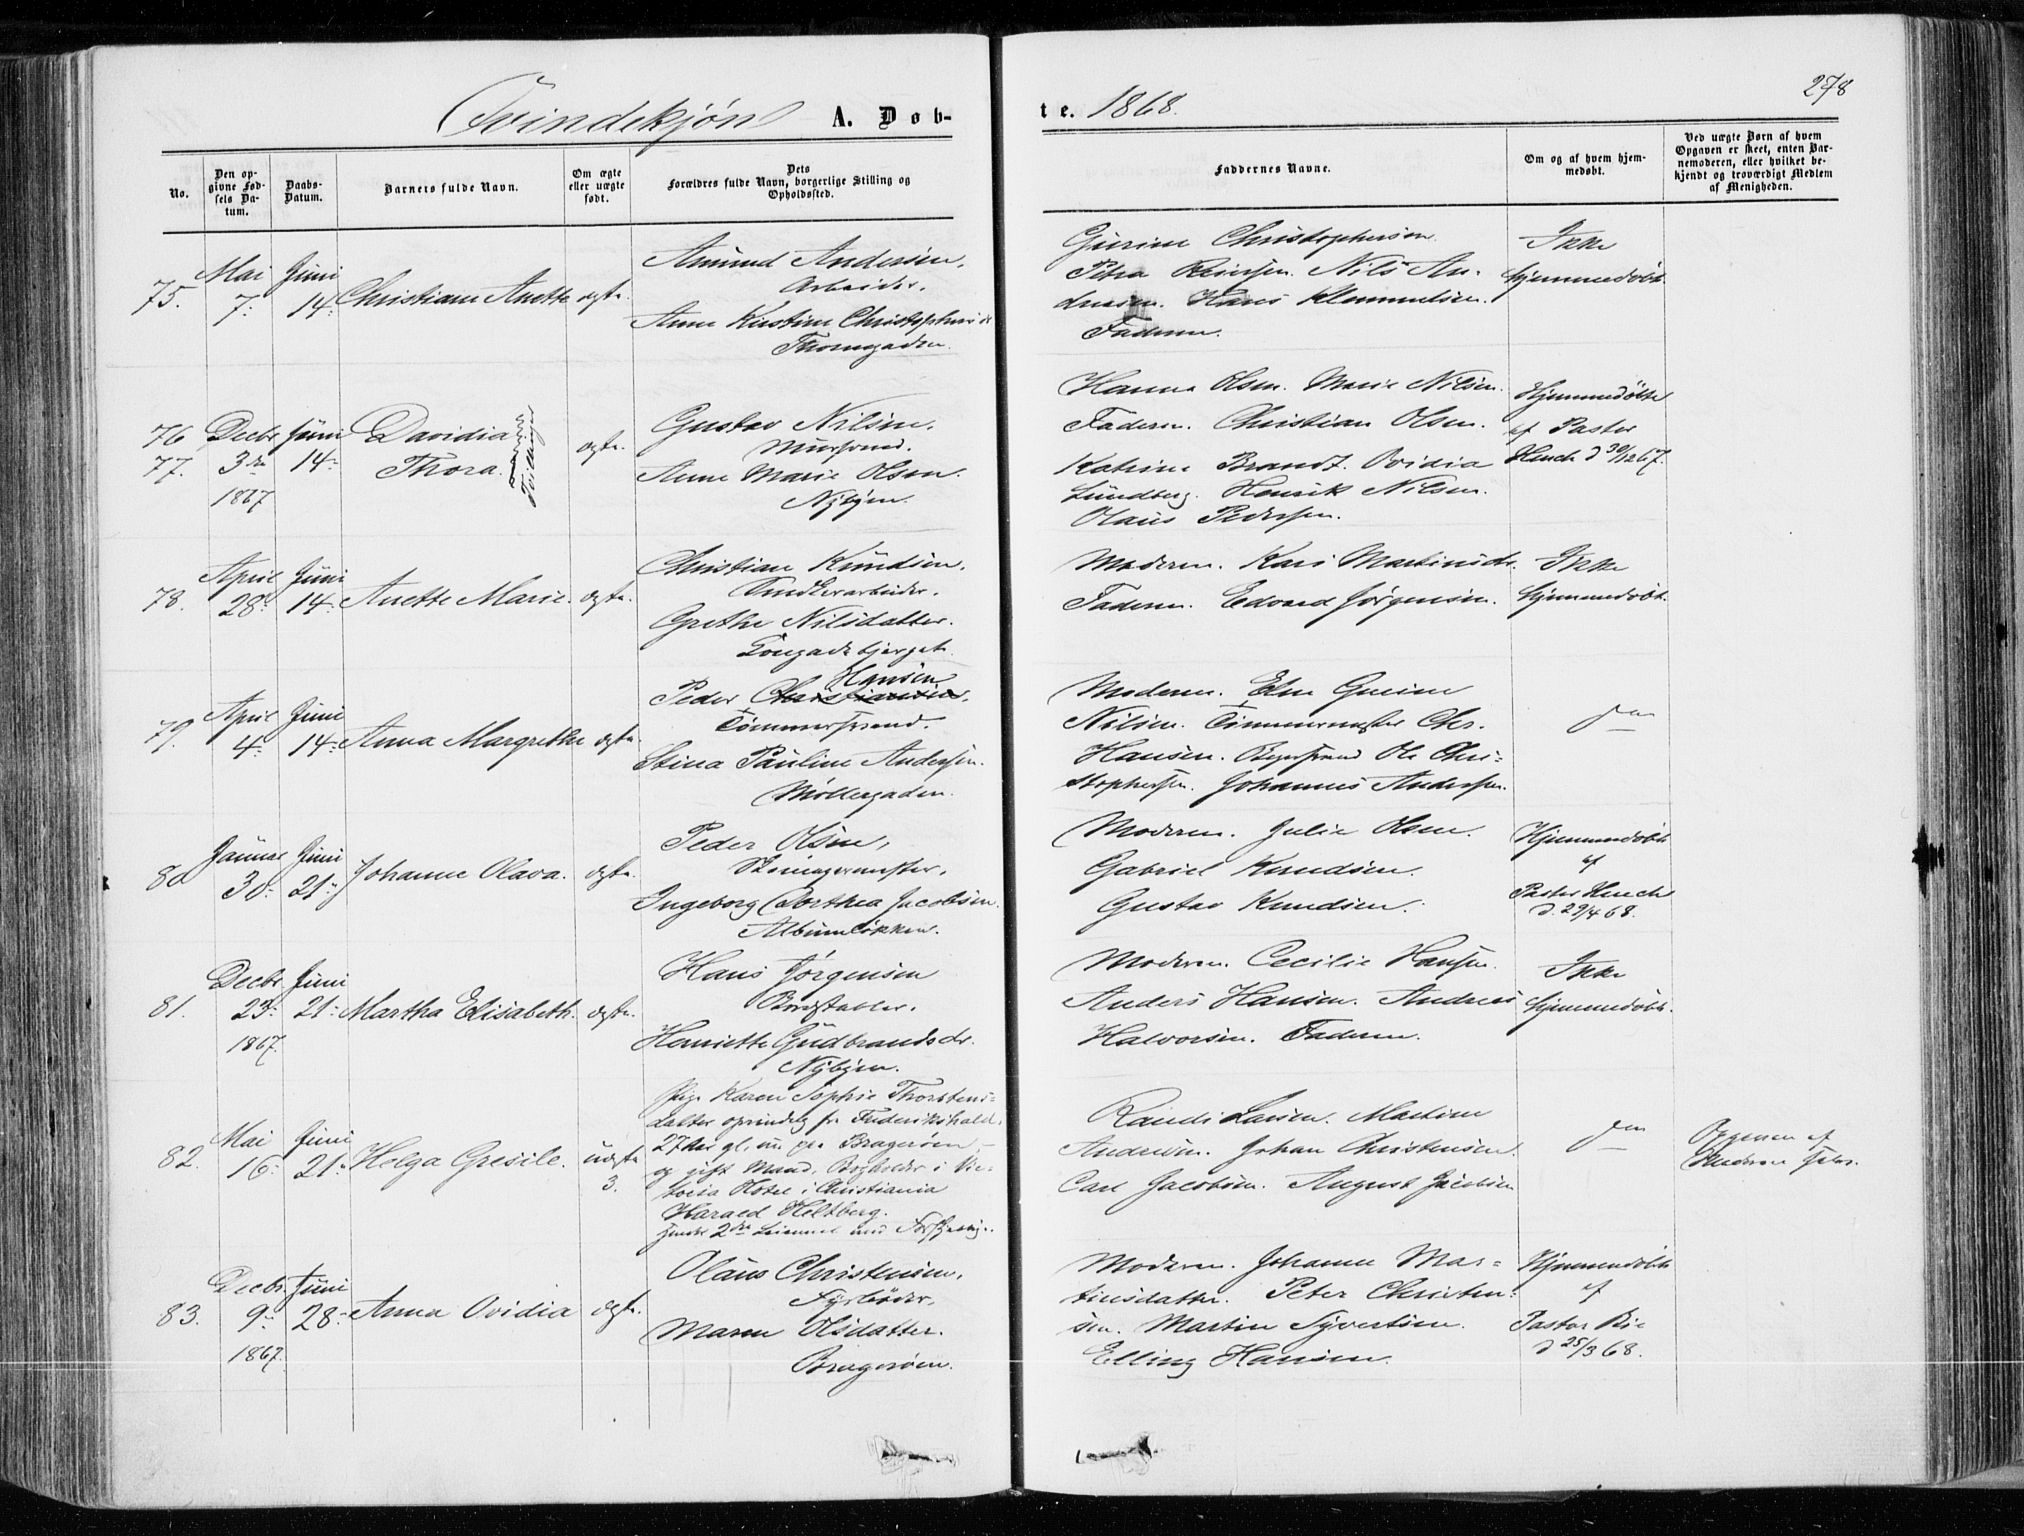 278
Qvindekjøn A. Døb-
te. 1868.
No.
Den op-
givne Fød-
sels Da-
tum.
Daabs-
Datum.
Barnets fulde Navn.
Om ægte
eller uægte
født.
Dets
Forældres fulde Navn, borgerlige Stilling og
Opholdssted.
Faddernes Navne.
Om og af hvem hjem-
medøbt.
Ved uægte Børn af hvem
Opgaven er skeet, enten Bar-
nemoderen, eller hvilket be-
kjendt og troværdigt Medlem
af Menigheden.
75. Mai 7. Juni 14. Christiane Anette ægte.
Amund Andersen.
Arbeider.
Anne Kirstine Christophersd.
Thornegaden.
Gurine Christophersen.
Petra Reiersen. Nils An-
dresen. Hans Klemmetsen.
Faderen.
Ikke
hjemmedøbt.
76 77. Decbr 3die 1867 Juni 14 Davidia
Thora. Tvillinger ægte.
Gustav Nilsen.
Muursvend.
Anne Marie Olsen.
Nybyen.
Hanna Olsen. Marie Nilsen.
Faderen. Christian Olsen.
Katrine Brandt. Ovidia
Lundberg. Henrik Nilsen.
Olaus Pedersen.
Hjemmedøbte
af Pastor
Heuch d 30/12 67.
78. April 28 Juni 14 Anette Marie. ægte.
Christian Knudsen.
Grethe Nilsdatter.
Tougadebjerget.
Moderen. Kari Martinsdr.
Faderen. Edvard Jørgensen.
Ikke
hjemmedøbt.
79. April 4 Juni 14 Anna Margrethe ægte
Hansen
Peder Christiansen.
Tømmersvend.
Stina Pauline Andersen.
Møllergaden.
Moderen. Elen Gurine
Nilsen. Tømmermester Chr.
Hansen. Ole Chri-
stophersen. Johannes Andersen.
do
80 Januar 30 Juni 21 Johanne Olava. ægte.
Peder Olsen,
Ingeborg Dorthea Jacobsen.
Albumløkken.
Moderen. Julie Olsen.
Gabriel Knudsen.
Gustav Knudsen.
Hjemmedøbt
af
Pastor Heuch
d. 29/4 68.
81. Decbr 23 1867. Juni 21 Martha Elisabeth. ægte.
Hans Jørgensen
Bordstabler.
Henriette Gudbrandsdr.
Nybyen.
Moderen. Cecilie Hansen.
Anders Hansen. Andreas
Halvorsen. Faderen.
Ikke
hjemmedøbt.
82. Mai 16 Juni 21 Helga Gresile. uægte 3.
Pige Karen Sophie Thorstens-
datter oprindelig fra Frederikshald.
27 Aar gl, nu paa Bragerøen,
og gift Mand, Bogholder i Vic-
toria Hotel i Christiania
Harald Heltberg.
hendes 2det Leiermaal
Randi Larsen. Martine
Andersen. Johan Christensen.
Carl Jacobsen. August Jacobsen
do
Opgaven af
Moderen selv.
83. Decbr 9 1867. Juni 28 Anna Ovidia ægte.
Olaus Christensen.
Fyrbøder.
Maren Olsdatter.
Bragerøen.
Moderen. Johanne Mar-
tinsdatter. Peter Christen-
sen. Martin Syvertsen.
Elling Hansen.
Hjemmedøbt
af
Pastor Rie
d 25/3 68.